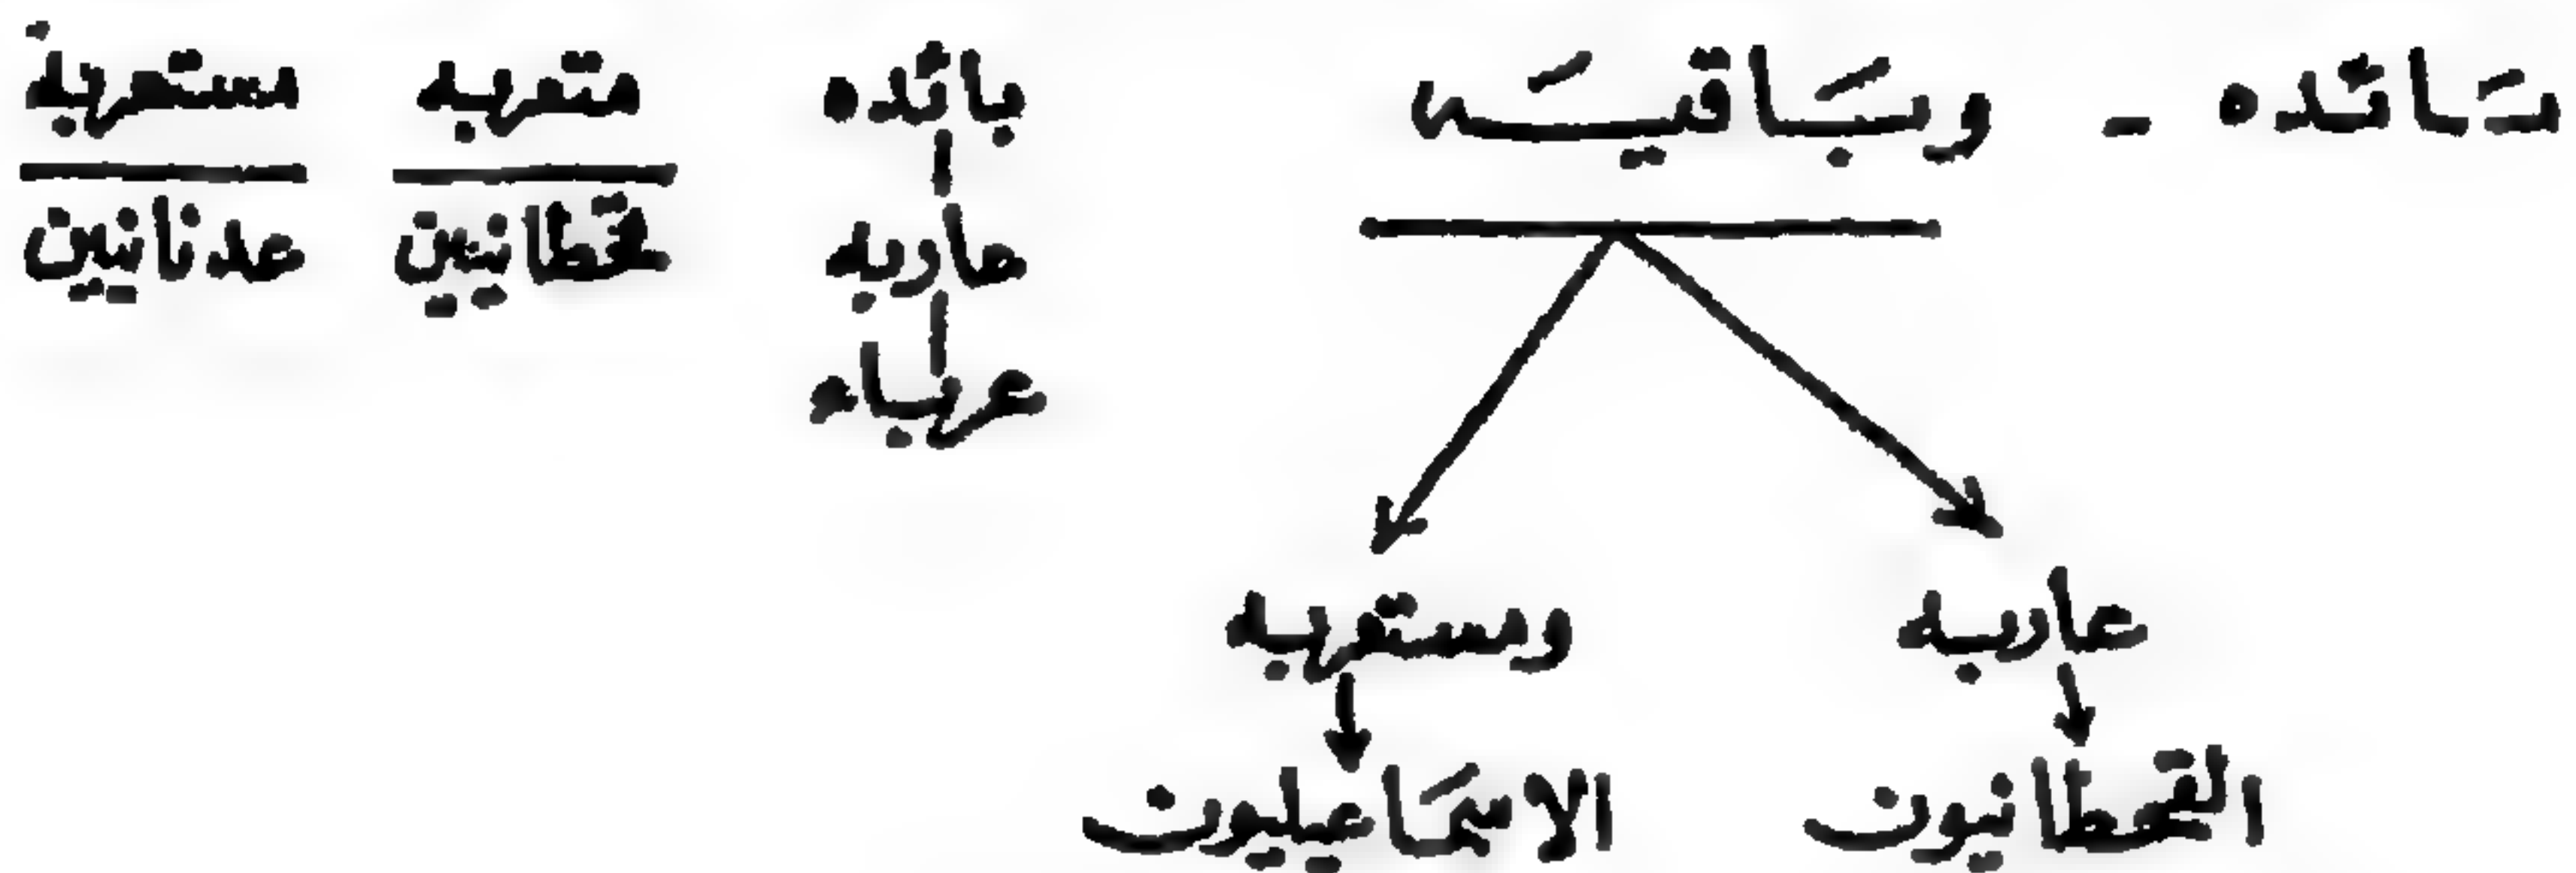 بَائده - وبَاقيَه
عاربه
ومستعربه
القحطانيون
الاسمَاعيليون
بائده
عاربه
عرباء
متعربه
قحطانيين
مستعربة
عدنانيين